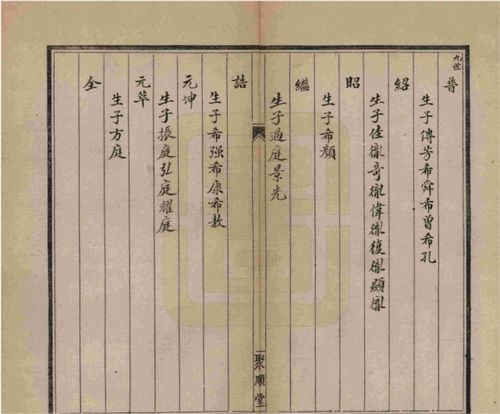 九世
普
生子傳芳希舜希曾希孔
紹
生子佳胤奇胤偉胤復胤顯胤
昭
生子希顏
繼
生子過庭景先
聚順堂
誥
生子希强希康希敖
元坤
生子振庭弘庭耀庭
元萃
生子方庭
仝